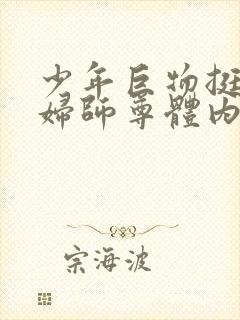 少年巨物挺
婦師尊體內
宗海波